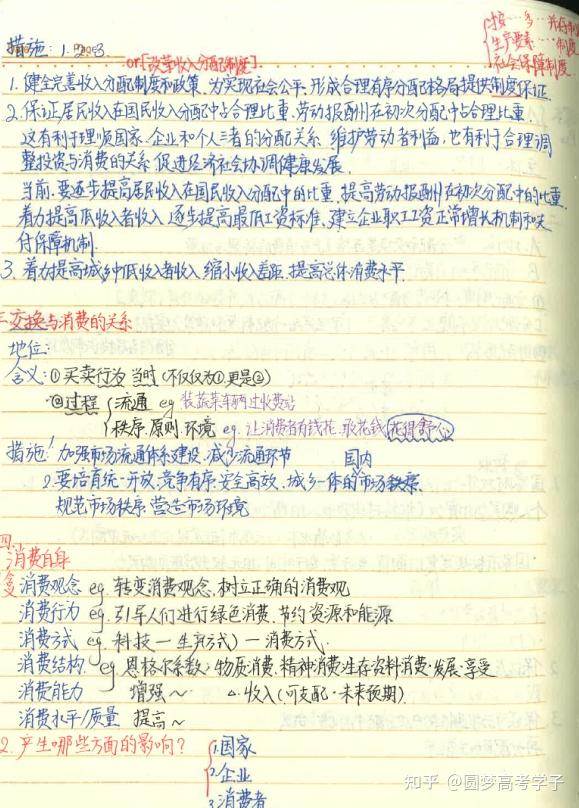 按一多
生产要素 制度
社会保障制度
措施: 1. 2. 3
or「改革收入分配制度」.
1. 健全完善收入分配制度和政策. 为实现社会公平, 形成合理有序分配格局提供制度保证.
2. 保证居民收入在国民收入分配中占合理比重. 劳动报酬州在初次分配中占合理比重.
这有利于理顺国家、企业和个人三者的分配关系. 维护劳动者利益, 也有利于合理调
整投资与消费的关系. 促进经济社会协调健康发展.
当前. 要逐步提高居民收入在国民收入分配中的比重. 提高劳动报酬州在初次分配中的比重.
着力提高低收入者收入. 逐步提高最低工资标准. 建立企业职工工资正常增长机制和支
付保障机制.
3. 着力提高城乡中低收入者收入. 缩小收入差距. 提高总体消费水平.
三 交换与消费的关系
地位:
含义: ① 买卖行为 当时 (不仅仅为①, 更是②)
②过程 流通 eg. 装蔬菜车辆过收费站
秩序. 原则. 环境 eg. 让消费者有钱花. 敢花钱. 花得舒心
措施: 1. 加强市场流通体系建设. 减少流通环节
国内
2. 要培育统一开放. 竞争有序. 安全高效. 城乡一体的市场秩序.
规范市场秩序. 营造市场环境
四.
消费自身
含义 消费观念 eg. 转变消费观念, 树立正确的消费观
消费行为 eg. 引导人们进行绿色消费. 节约资源和能源
消费方式 eg. 科技—生产方式)—消费方式.
消费结构. eg 恩格尔系数, 物质消费. 精神消费 生存资料消费·发展·享受
消费能力 增强~ △·收入(可支配·未来预期).
消费水平/质量 提高~
2. 产生哪些方面的影响? 1. 国家
2. 企业
3. 消费者
知乎 @圆梦高考学子